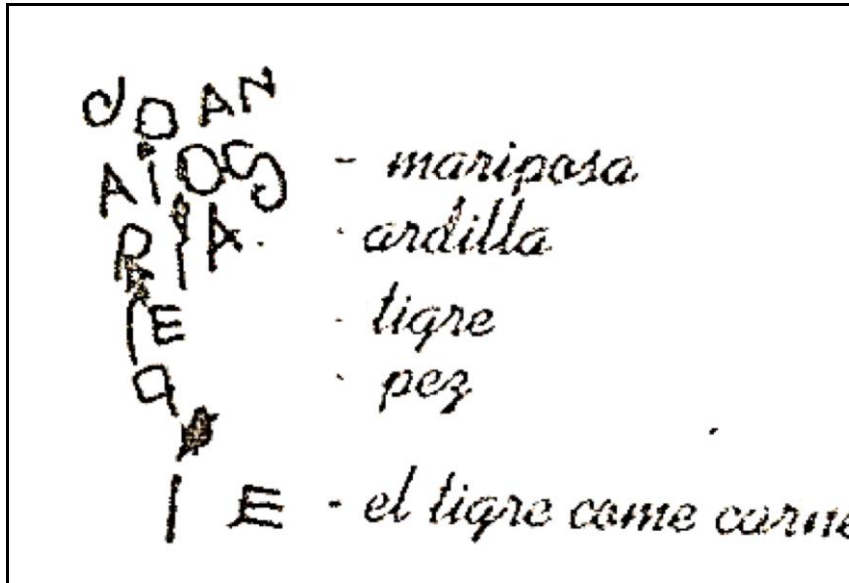 JOAN
AIOS - mariposa
RIA. - ardilla
IE - tigre
a - pez
I E - el tigre come carne